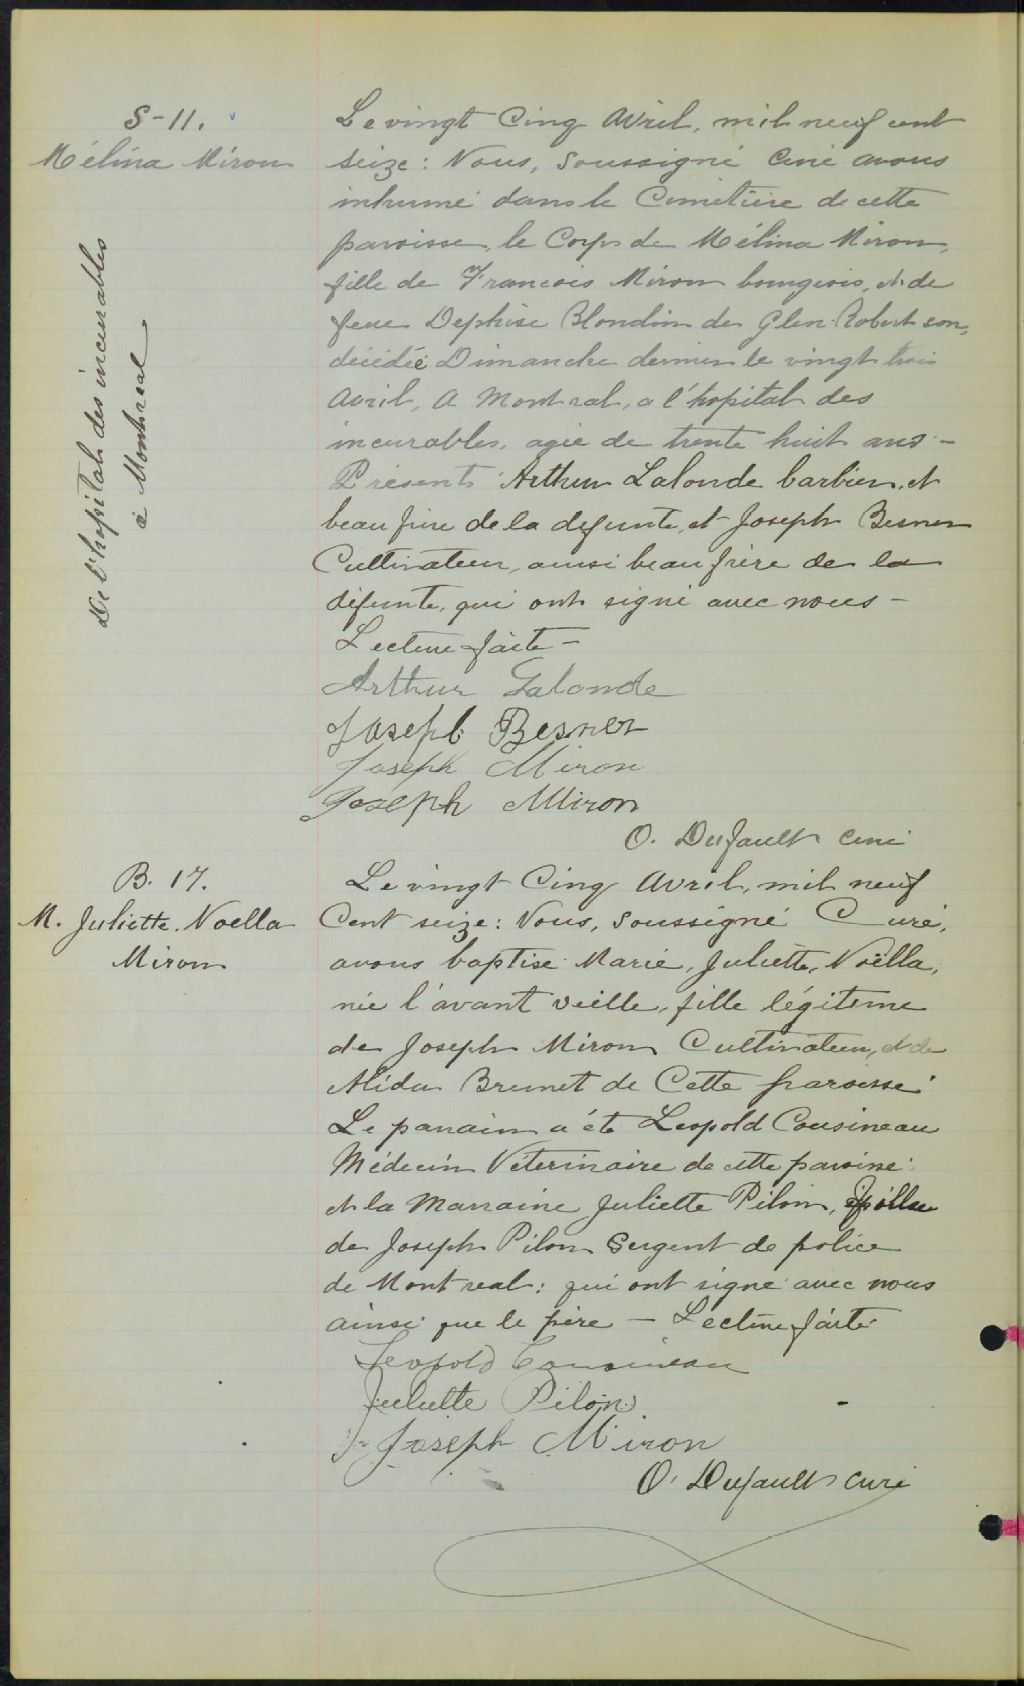 S-11.
Mélina Miron
De l'hopital des incurables
à Montreal
Le vingt Cinq Avril, mil neuf cent
seize: Nous, soussigné Curé avons
inhumé dans le Cimetière de cette
paroisse, le Corps de Mélina Miron,
fille de Francois Miron bourgeois, et de
feue Dephise Blondin de Glen Robertson,
décédée Dimanche dernier le vingt trois
Avril, A Montreal, a l'hopital des
incurables, agée de trente huit ans -
Présents Arthur Lalonde barbier, et
beau frère de la defunte, et Joseph Besner
Cultivateur, aussi beau frère de la
défunte, qui ont signé avec nous -
Lecture faite -
Arthur Lalonde
Joseph Besner
Joseph Miron
Joseph Miron
O. Dufault curé
B. 17.
M. Juliette. Noella
Miron
Le vingt Cinq Avril, mil neuf
Cent seize: Nous, soussigné Curé,
avons baptisé Marie, Juliette, Noëlla,
née l'avant veille, fille légitime
de Joseph Miron Cultivateur, et de
Alida Brunet de Cette paroisse
Le parrain a été Leopold Cousineau
Médecin Véterinaire de cette paroisse:
et la Marraine Juliette Pilon, fille
de Joseph Pilon Sergent de police
de Montreal: qui ont signé avec nous
ainsi que le père - Lecture faite
Leopold Cousineau
Juliette Pilon
Joseph Miron
O. Dufault curé